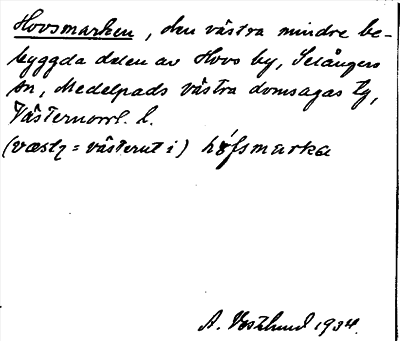 Hovsmarken, den västra mindre be-
byggda delen av Hovs by, Selångers
sn, Medelpads västra domsagas tg,
Västernorrl. l.
(væstʒ = västerut i) hǿfsmarka
A. Vestlund 1934.